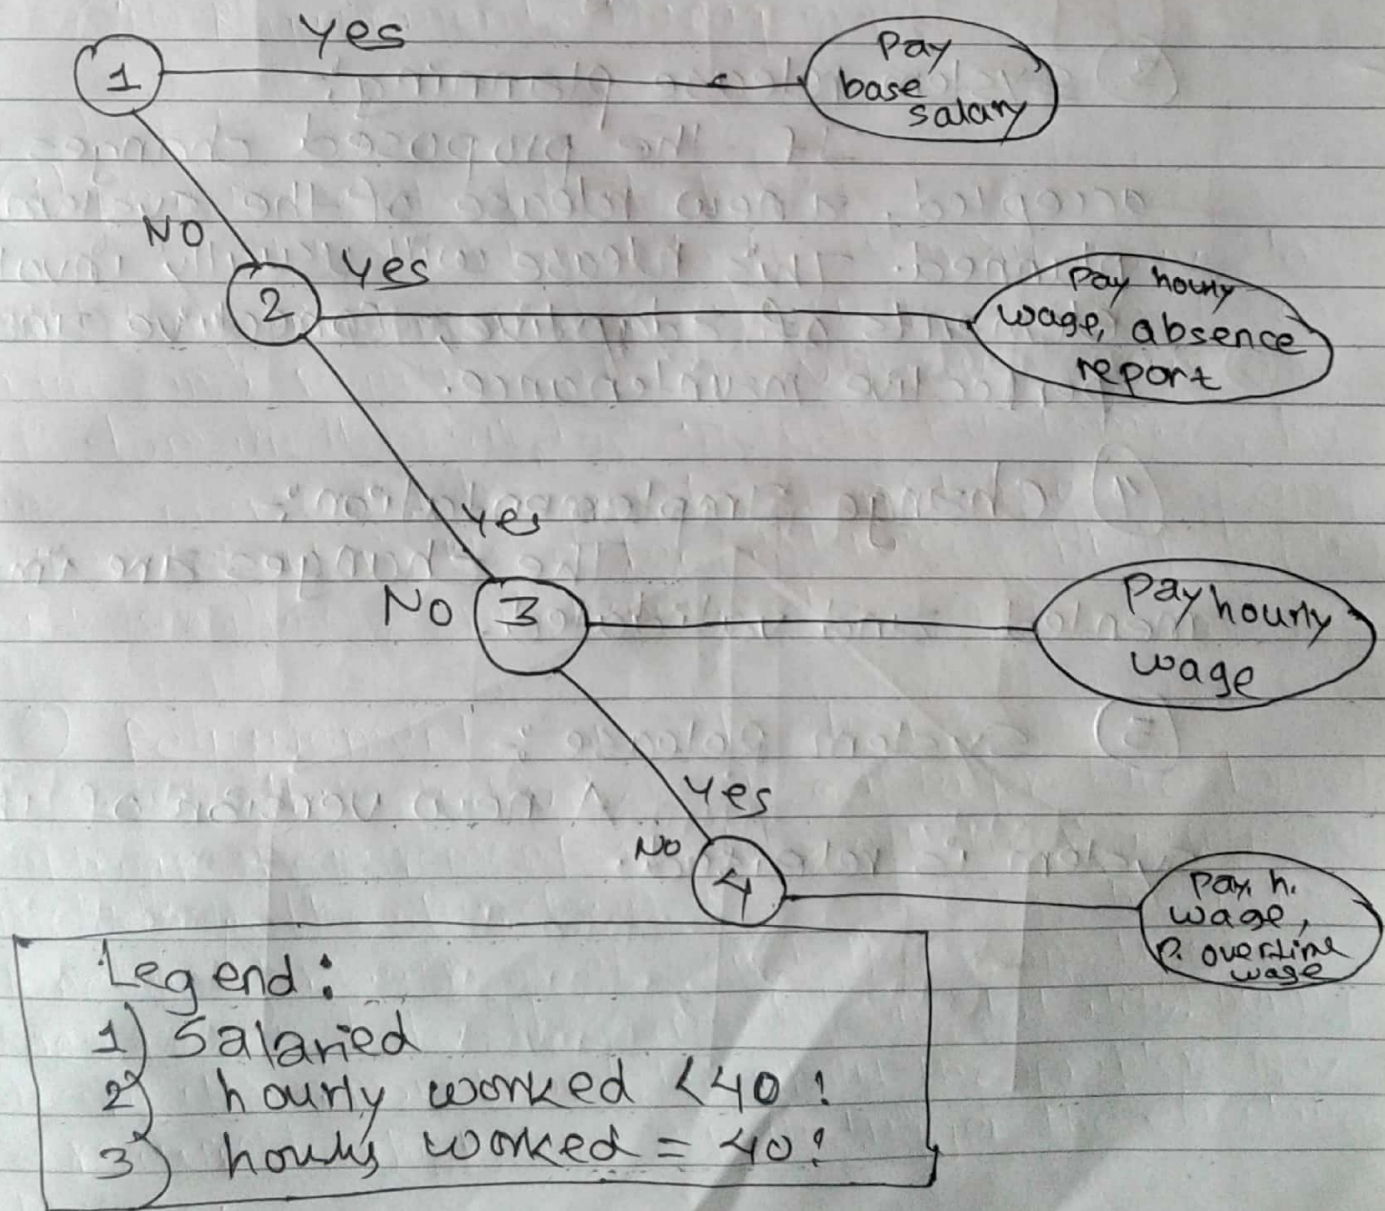 Yes
1
Pay
base
salary
NO
2
Yes
Pay hourly
wage, absence
report
Yes
NO
3
Pay hourly
wage
Yes
NO
4
Pay h.
wage,
P. overtime
wage
Legend:
1) Salaried
2) hourly worked <40 !
3) hours worked = 40 !